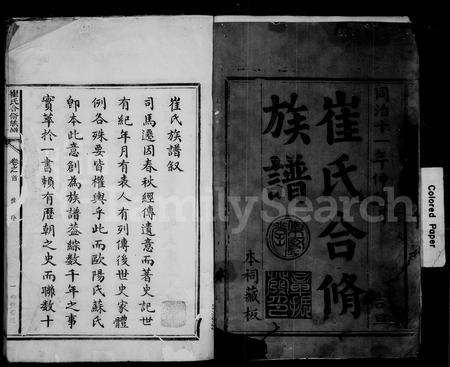 同治十一年仲
吉旦
崔氏合脩
族譜
本祠藏板
崔氏族譜敘
司馬遷因春秋經傳遺意而著史記世
有紀年月有表人有列傳後世史家體
例各殊要皆權輿乎此而歐陽氏蘇氏
卽本此意創為族譜蓋綜數千年之事
實萃於一書賴有歷朝之史而聯數十
崔氏合脩族譜
卷之首
FamilySearch
Colored Paper